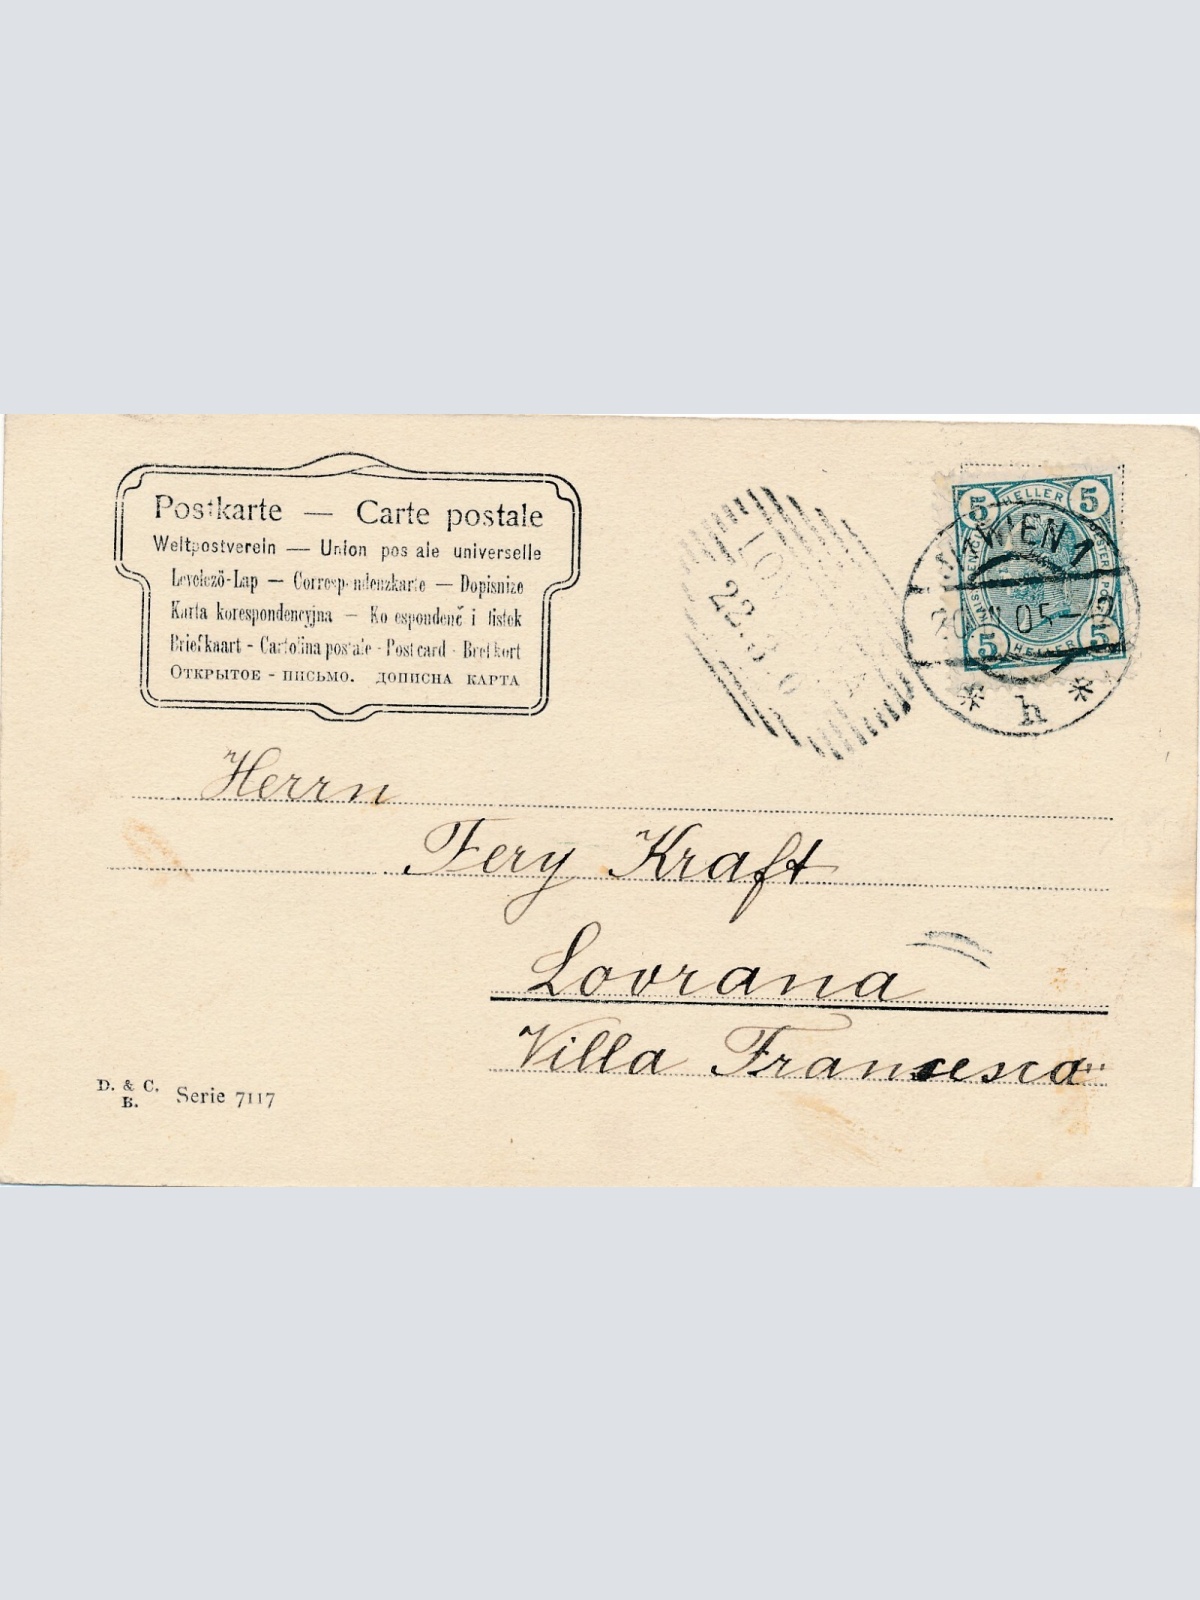 Postkarte — Carte postale
Weltpostverein — Union pos ale universelle
Levelező-Lap — Correspondenzkarte — Dopisnize
Karta korespondencyjna — Ko espondenč i listek
Briefkaart - Cartolina postale - Post card - Bref kort
ОТКРЫТОЕ - ПИСЬМО. ДОПИСНА КАРТА
HELLER
5 5
WIEN 1
05
5 5
HELLER
* h *
22.3.0
Herrn
Fery Kraft
Lovrana
Villa Francesca
D. & C.
B. Serie 7117